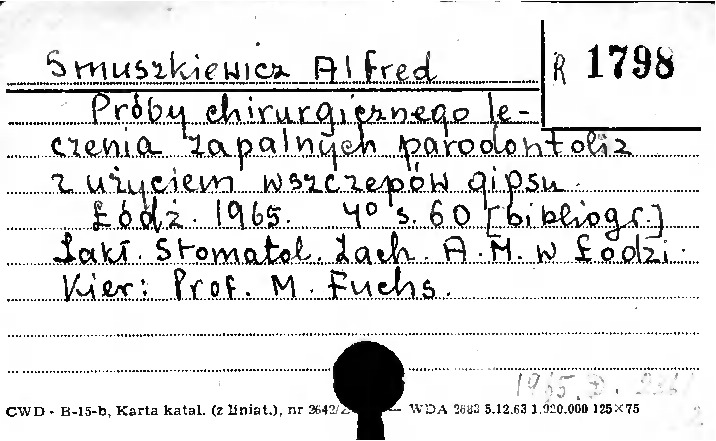 Smuszkiewicz Alfred
R 1798
Próby chirurgicznego le-
czenia zapalnych parodontoliz
z użyciem wszczepów gipsu.
Łódź. 1965. 4° s. 60 [bibliogr.]
Zakł. Stomatol. Zach. A.M. w Łodzi.
Kier: Prof. M. Fuchs.
1965. D.
CWD - B-15-b, Karta katal. (z liniat.), nr 2642/ — WDA 2682 5.12.63 1.920.000 125×75